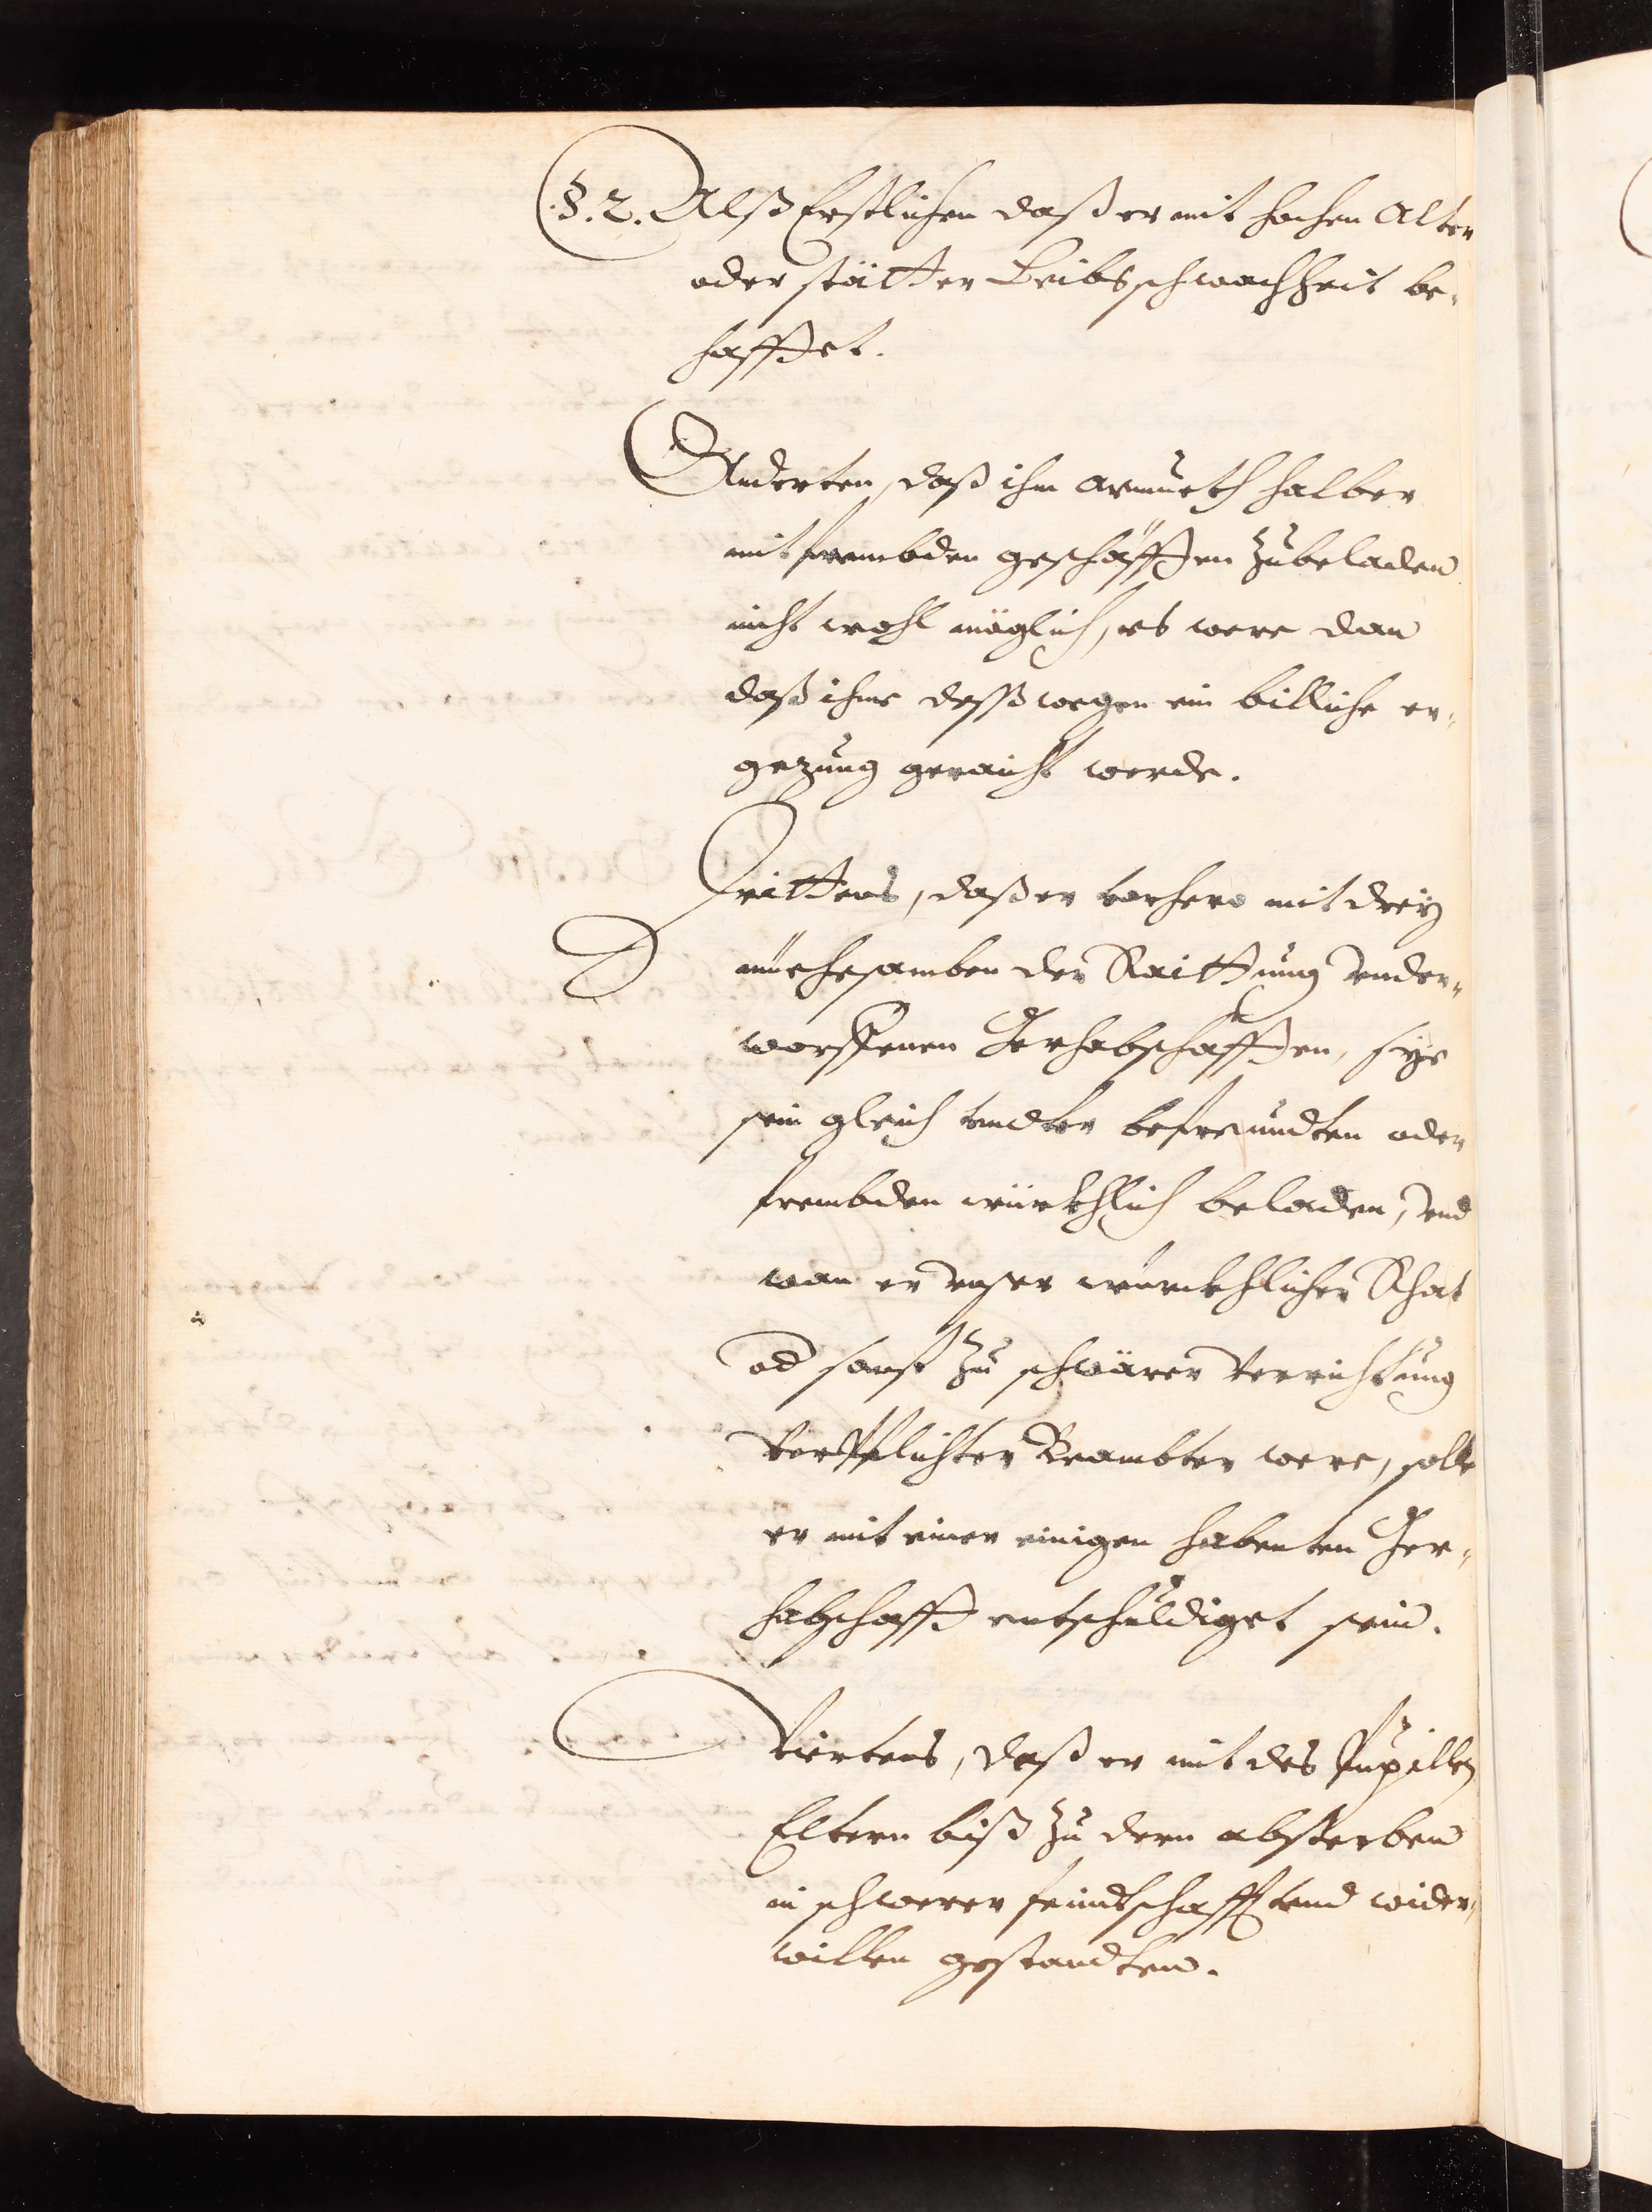 §. 2. Alß Erstlichen daß er mit hochen Alter
oder stätter Leibsschwachheit be-
hafftet.
Anderten, daß ihm armueth halber
mit frembden geschäfften zubeladen
nicht wohl möglich, es were dan
daß ihme desswegen ein billiche er-
gezung geraicht werde.
Drittens, daß er vorhero mit drey
müehesamben der Raittung vnder-
worffenen Gerhabschafften, sye
sein gleich vndter befreundten oder
frembden würkhlich beladen, vnd
wan er vnser würckhlicher Rhat
od sonst zu schwärer verrichtung
verpflichter Beambter were, solle
er mit einer einigen habenten Ger-
habschafft entschuldiget sein.
Viertens, daß er mit des Pupillen
Eltern biß zu dern absterben
in schwerer feindtschafft vnd wider-
willen gestandten.